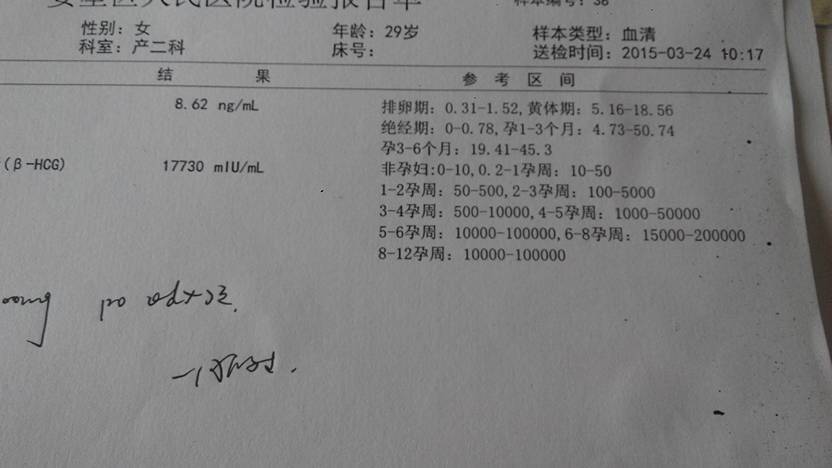 区人民医院检验报告单
样本编号: 36
性别: 女 年龄: 29岁 样本类型: 血清
科室: 产二科 床号: 送检时间: 2015-03-24 10:17
结 果 参 考 区 间
8.62 ng/mL 排卵期: 0.31-1.52,黄体期: 5.16-18.56
绝经期: 0-0.78,孕1-3个月: 4.73-50.74
孕3-6个月: 19.41-45.3
(β-HCG) 17730 mIU/mL 非孕妇:0-10,0.2-1孕周: 10-50
1-2孕周: 50-500,2-3孕周: 100-5000
3-4孕周: 500-10000,4-5孕周: 1000-50000
5-6孕周: 10000-100000,6-8孕周: 15000-200000
8-12孕周: 10000-100000
po